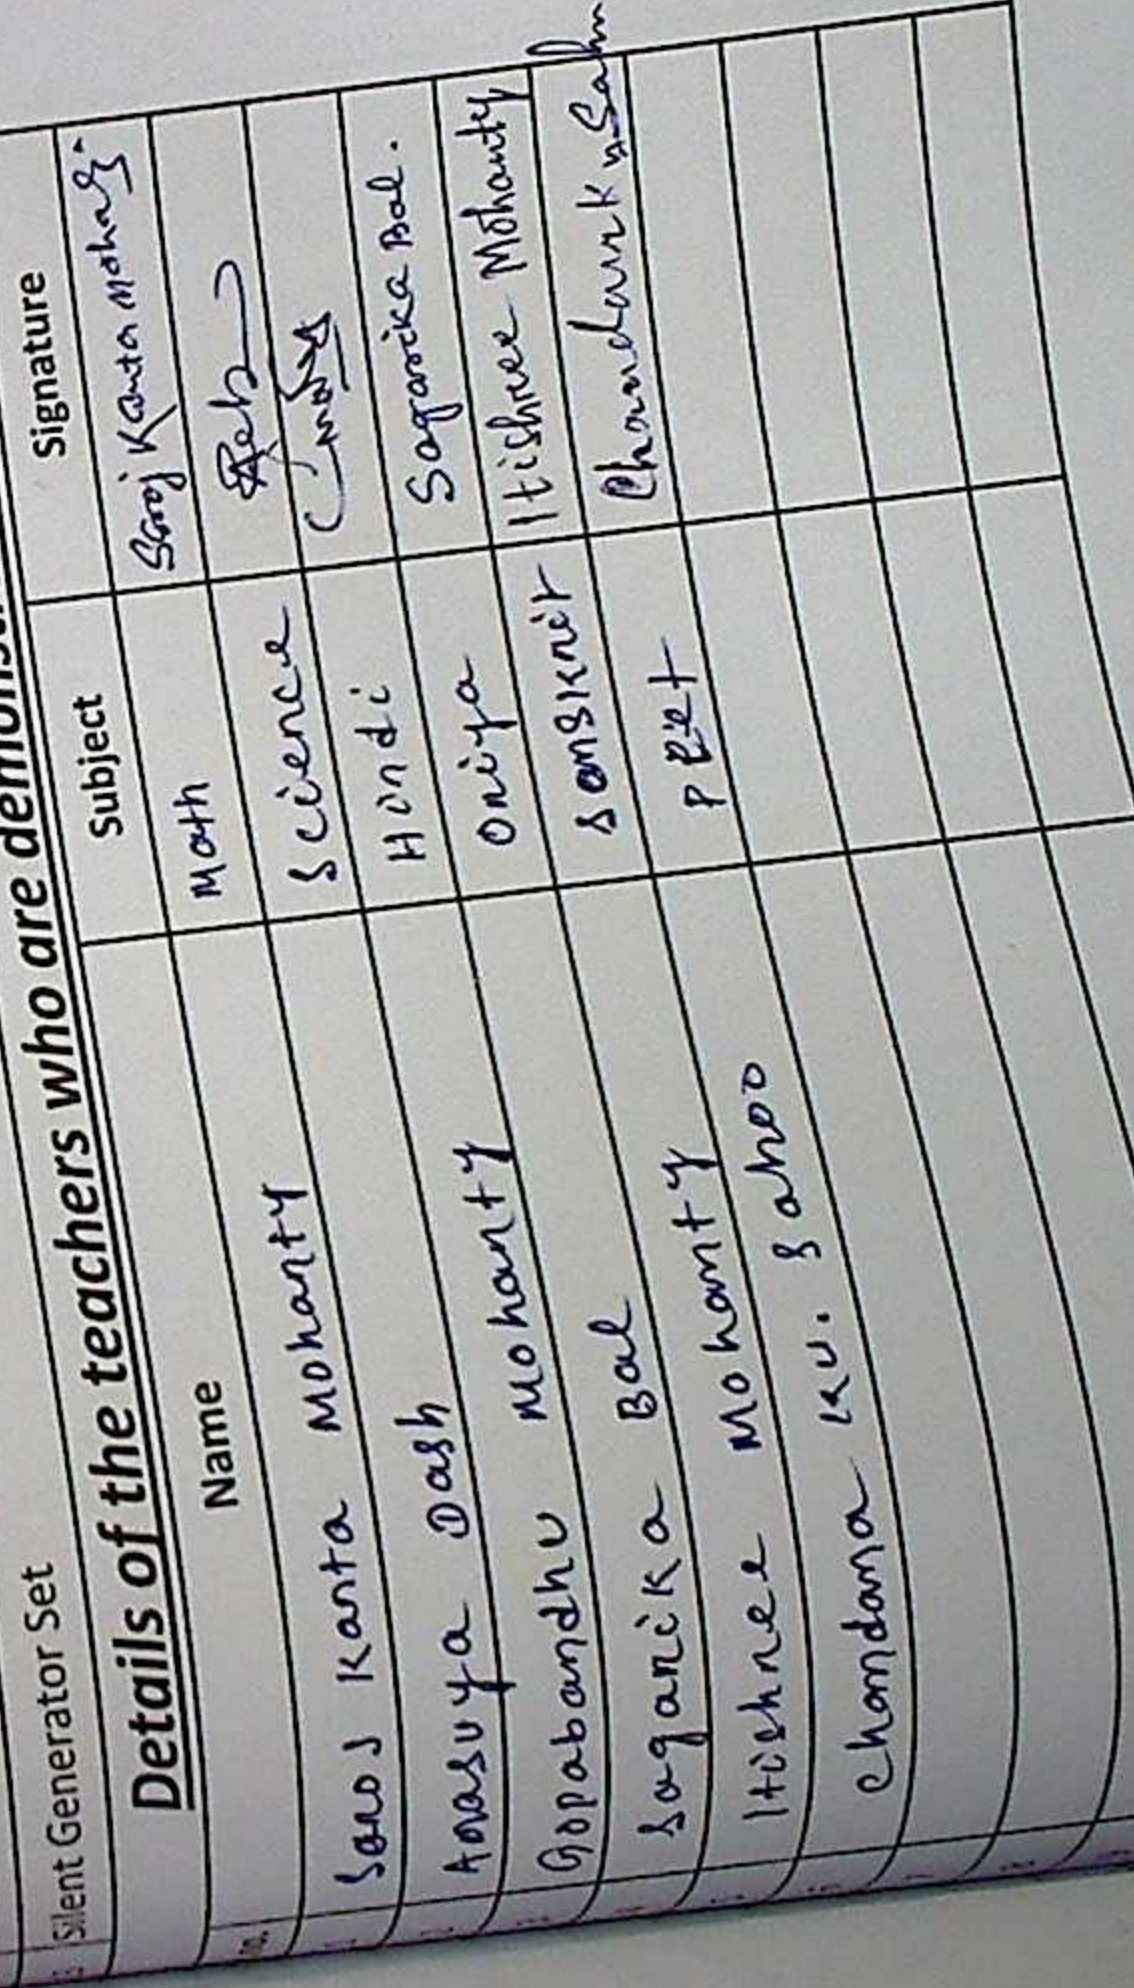 Silent Generator Set
Details of the teachers who are
Name Subject Signature
Saroj Kanta Mohanty Math Saroj Kanta Mohanty
Anasuya Dash Science
Gopabandhu Mohanty Hindi
Sagarika Bal Oriya Sagarika Bal.
Itishree Mohanty Sanskrit Itishree Mohanty
Chandana Ku. Sahoo PET Chandan K Sahoo